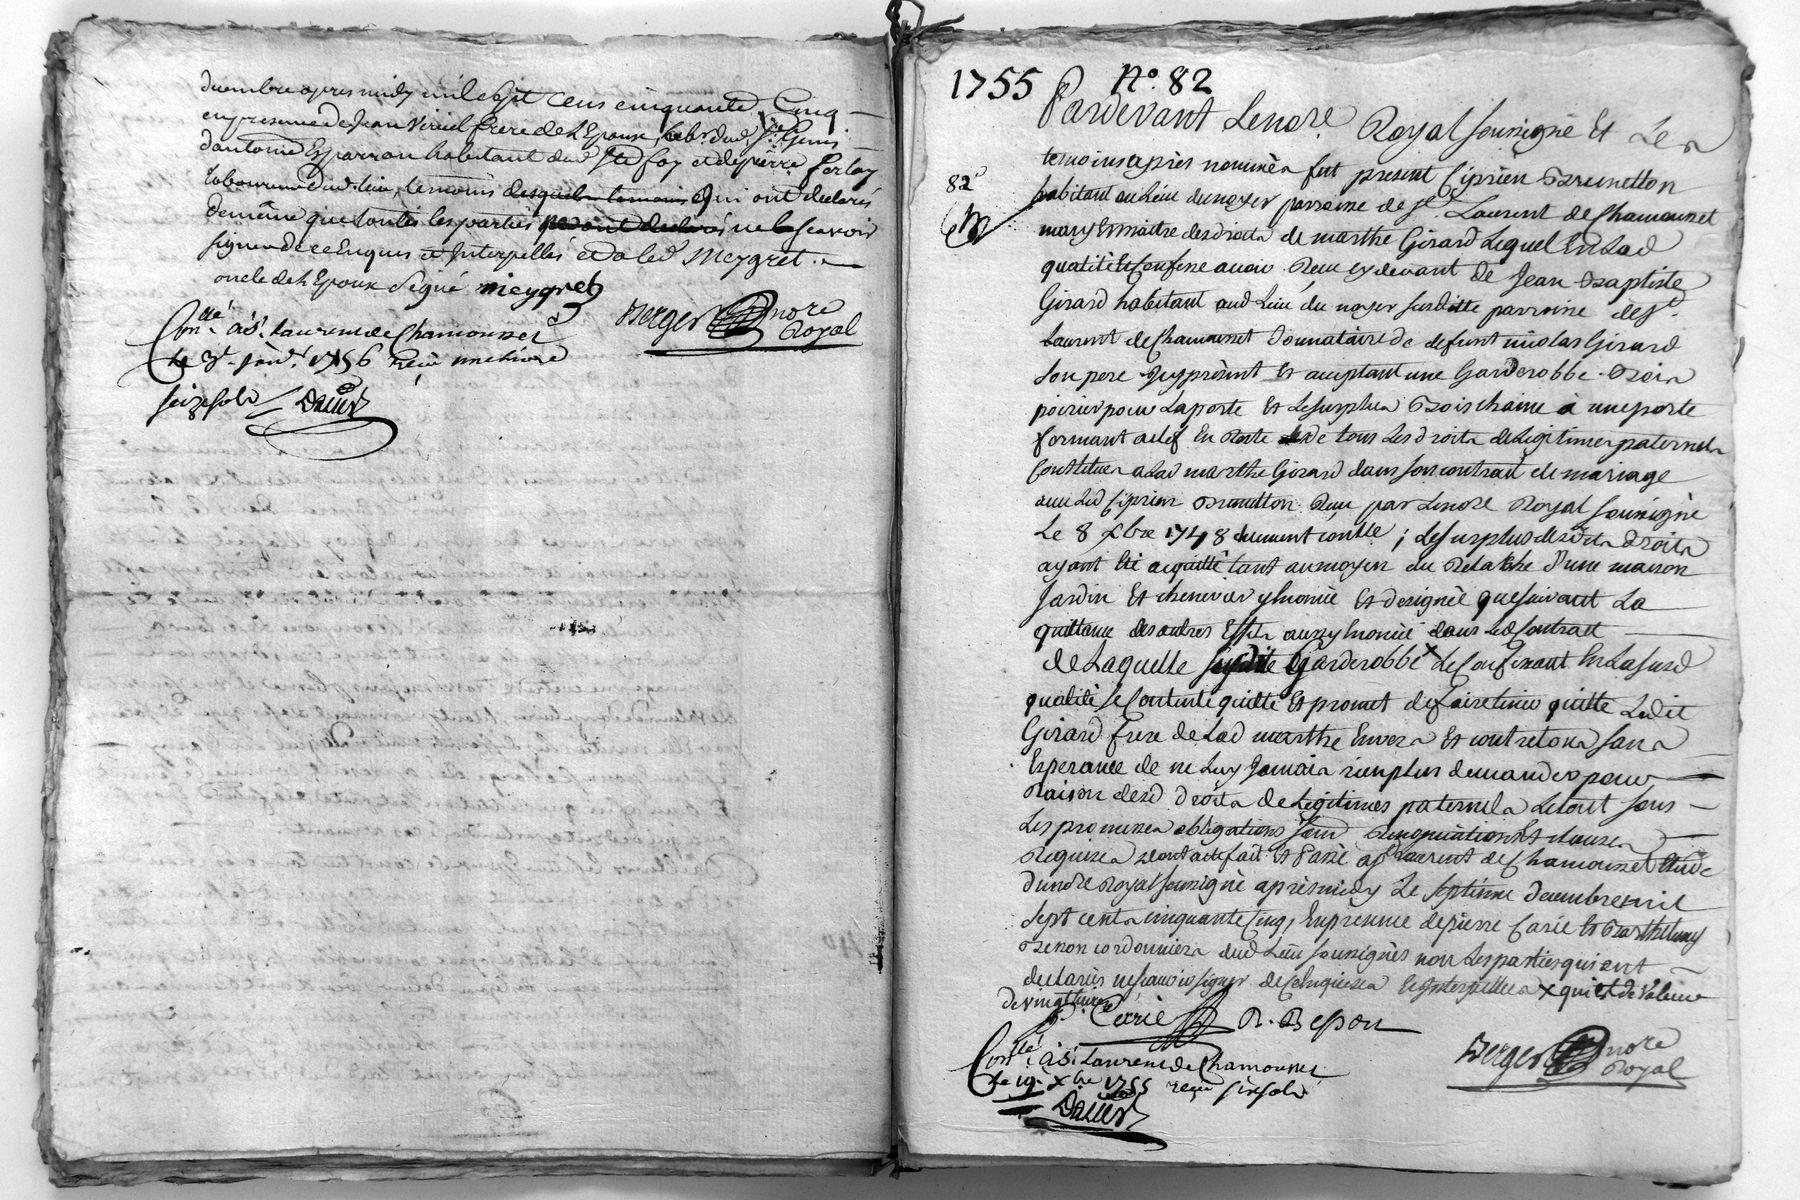 decembre apres midy mil sept cens cinquante Cinq
en presence de Jean Viriel frere de L'Epoux, labr. dud. St. Genis
d'antoine Esparron habitant dud. Ste foy et de pierre ferlay
laboureur dud. lieu, temoins desquels temoins Qui ont declarés
de même que toutes les parties ne ont declaré ne le scavoir
signer de ce Enquis et Interpellés et a led. Meygret
oncle de L'Epoux Signé meygret
Berger nore Royal
Conllé. à St. Laurent de Chamousset
le 3e. janr. 1756 Receu une livre
seize sols
1755 No. 82
Pardevant Le nore. Royal soussigné Et Les
temoins après nommés fut present Ciprien Brunetton
82e
habitant au Lieu du noyer parroisse de St. Laurent de Chamousset
mary Et maitre des droits de marthe Girard Lequel En Lad
qualité Et Confesse avoir Receu cy devant de Jean Baptiste
Girard habitant aud Lieu du noyer susditte parroisse de St.
Laurent de Chamousset Donnataire de defunt nicolas Girard
son pere Icy present Et acceptant une Garderobbe Bois
poirier pour La porte Et Le surplus Bois chaine à une porte
fermant a clef En Reste de tous Les droits de Legitimes paternels
Constitués a Lad marthe Girard dans son contrat de mariage
avec Led Ciprien Brunetton Receu par Le nore Royal soussigné
Le 8 xbre 1748 duement conllé ; Le surplus desdits Droits
ayant Eté acquitté tant au moyen du Relache D'une maison
Jardin Et chenevier y Enoncé Et designée que suivant La
quittance des autres Effets aussy Enoncé dans Led Contrat
de Laquelle susditte Garderobbe x Le Confessant En La susd
qualité se Contente quitte Et promet de faire tenir quitte Ledit
Girard frere de Lad marthe Envers Et contre tous sans
Esperance de ne Luy Jamais rien plus demander pour
Raison desd Droits de Legitimes paternels Le tout sous
Les promesses obligations soumd Renonciations Et clauses
Requises dont acte fait Et Passé a St Laurent de Chamousset Etude
du nore Royal soussigné après midy Le septieme decembre mil
sept cents cinquante Cinq, En presence de pierre Carié Et Barthelemy
Besson cordonniers dud Lieu soussignés non Les parties qui ont
declarés ne scavoir signer de Ce Enquises Et Interpellées x qui est de valeur
de vingt livres
P. Carié B. Besson
Berger nore Royal
Conllé. à St Laurent de Chamousset
le 19e xbre 1755 receu six sols